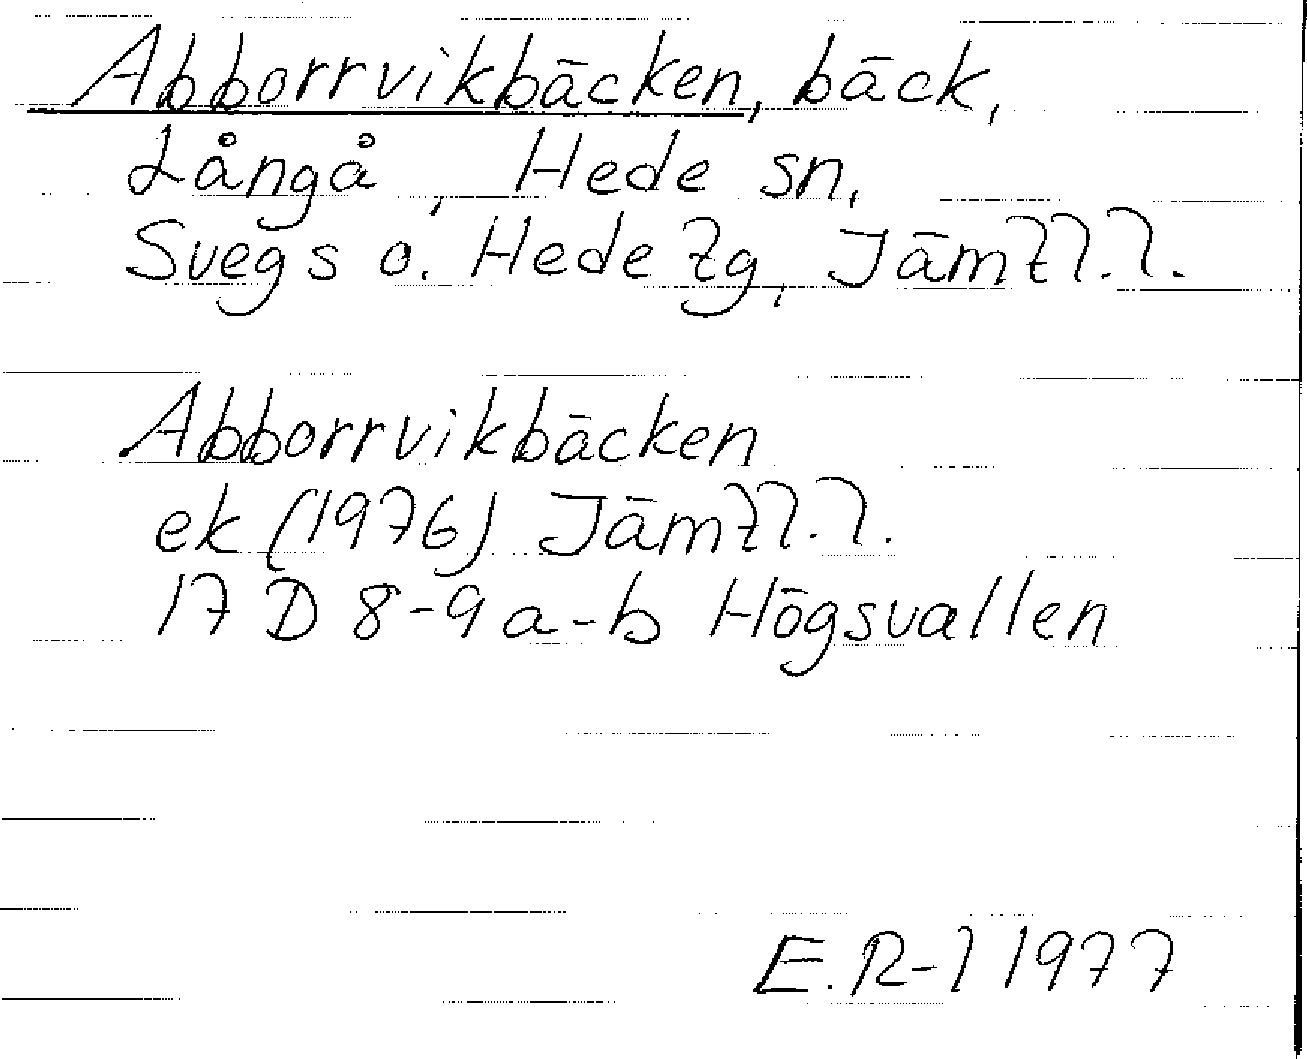 Abborrvikbäcken, bäck,
Långå, Hede sn,
Svegs o. Hede tg, Jämtl.l.
Abborrvikbäcken
ek (1976) Jämtl.l.
17 D 8-9 a-b Högsvallen
E.R-l 1977